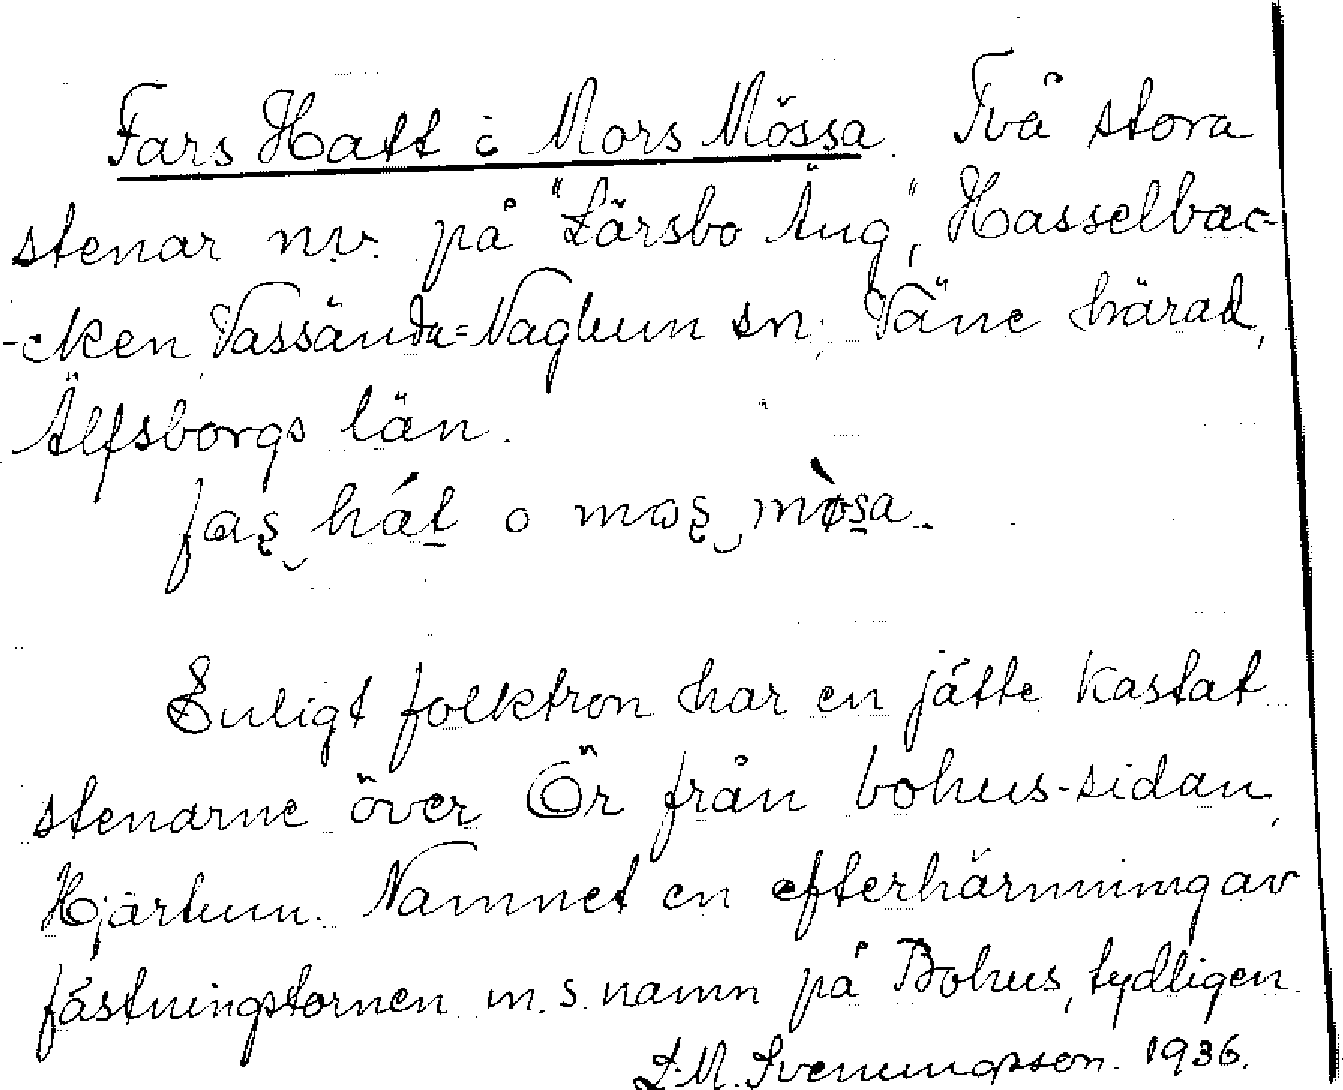 Fars Hatt o Mors Mössa. Två stora
stenar n.v. på "Lärsbo Äng", Hasselbac-
-cken, Vassända=Naglum sn, Väne härad,
Älfsborgs län.
fas̨ hát o mɷs̨ mø̀sa.
Enligt folktron har en jätte kastat
stenarne över Ör från bohus-sidan,
Hjärtum. Namnet en efterhärmning av
fästningstornen m.s. namn på Bohus, tydligen.
L.M. Svenungsson. 1936.